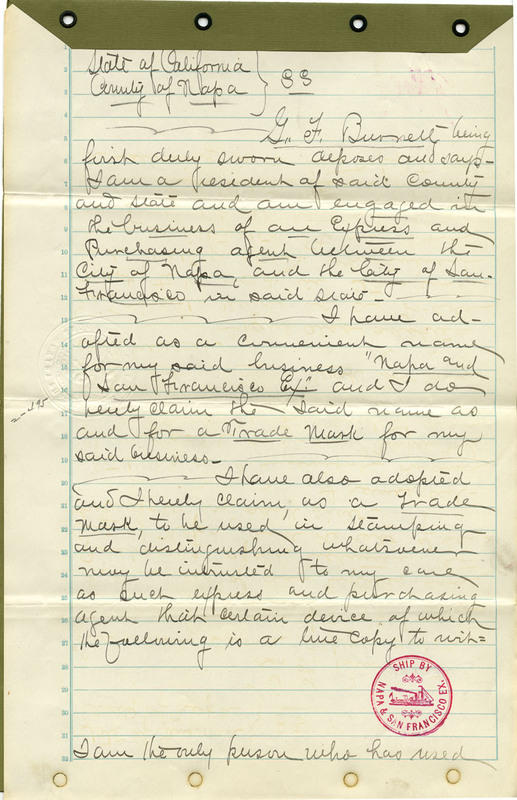 State of California
County of Napa } SS
G. F. Burnett being
first duly sworn deposes and says-
I am a resident of said County
and state and am engaged in
the business of an Express and
Purchasing agent between the
City of Napa, and the City of San-
Francisco in said state-
I have ad-
opted as a convenient name
for my said business "Napa and
San Francisco Ex." and I do
hereby claim the said name as
and for a Trade Mark for my
said business-
I have also adopted
and I hereby claim, as a Trade
Mark, to be used in stamping
and distinguishing whatsoever
may be intrusted to my care
as such express and purchasing
agent that certain device of which
the following is a true copy to wit=
SHIP BY
NAPA & SAN FRANCISCO EX.
I am the only person who has used